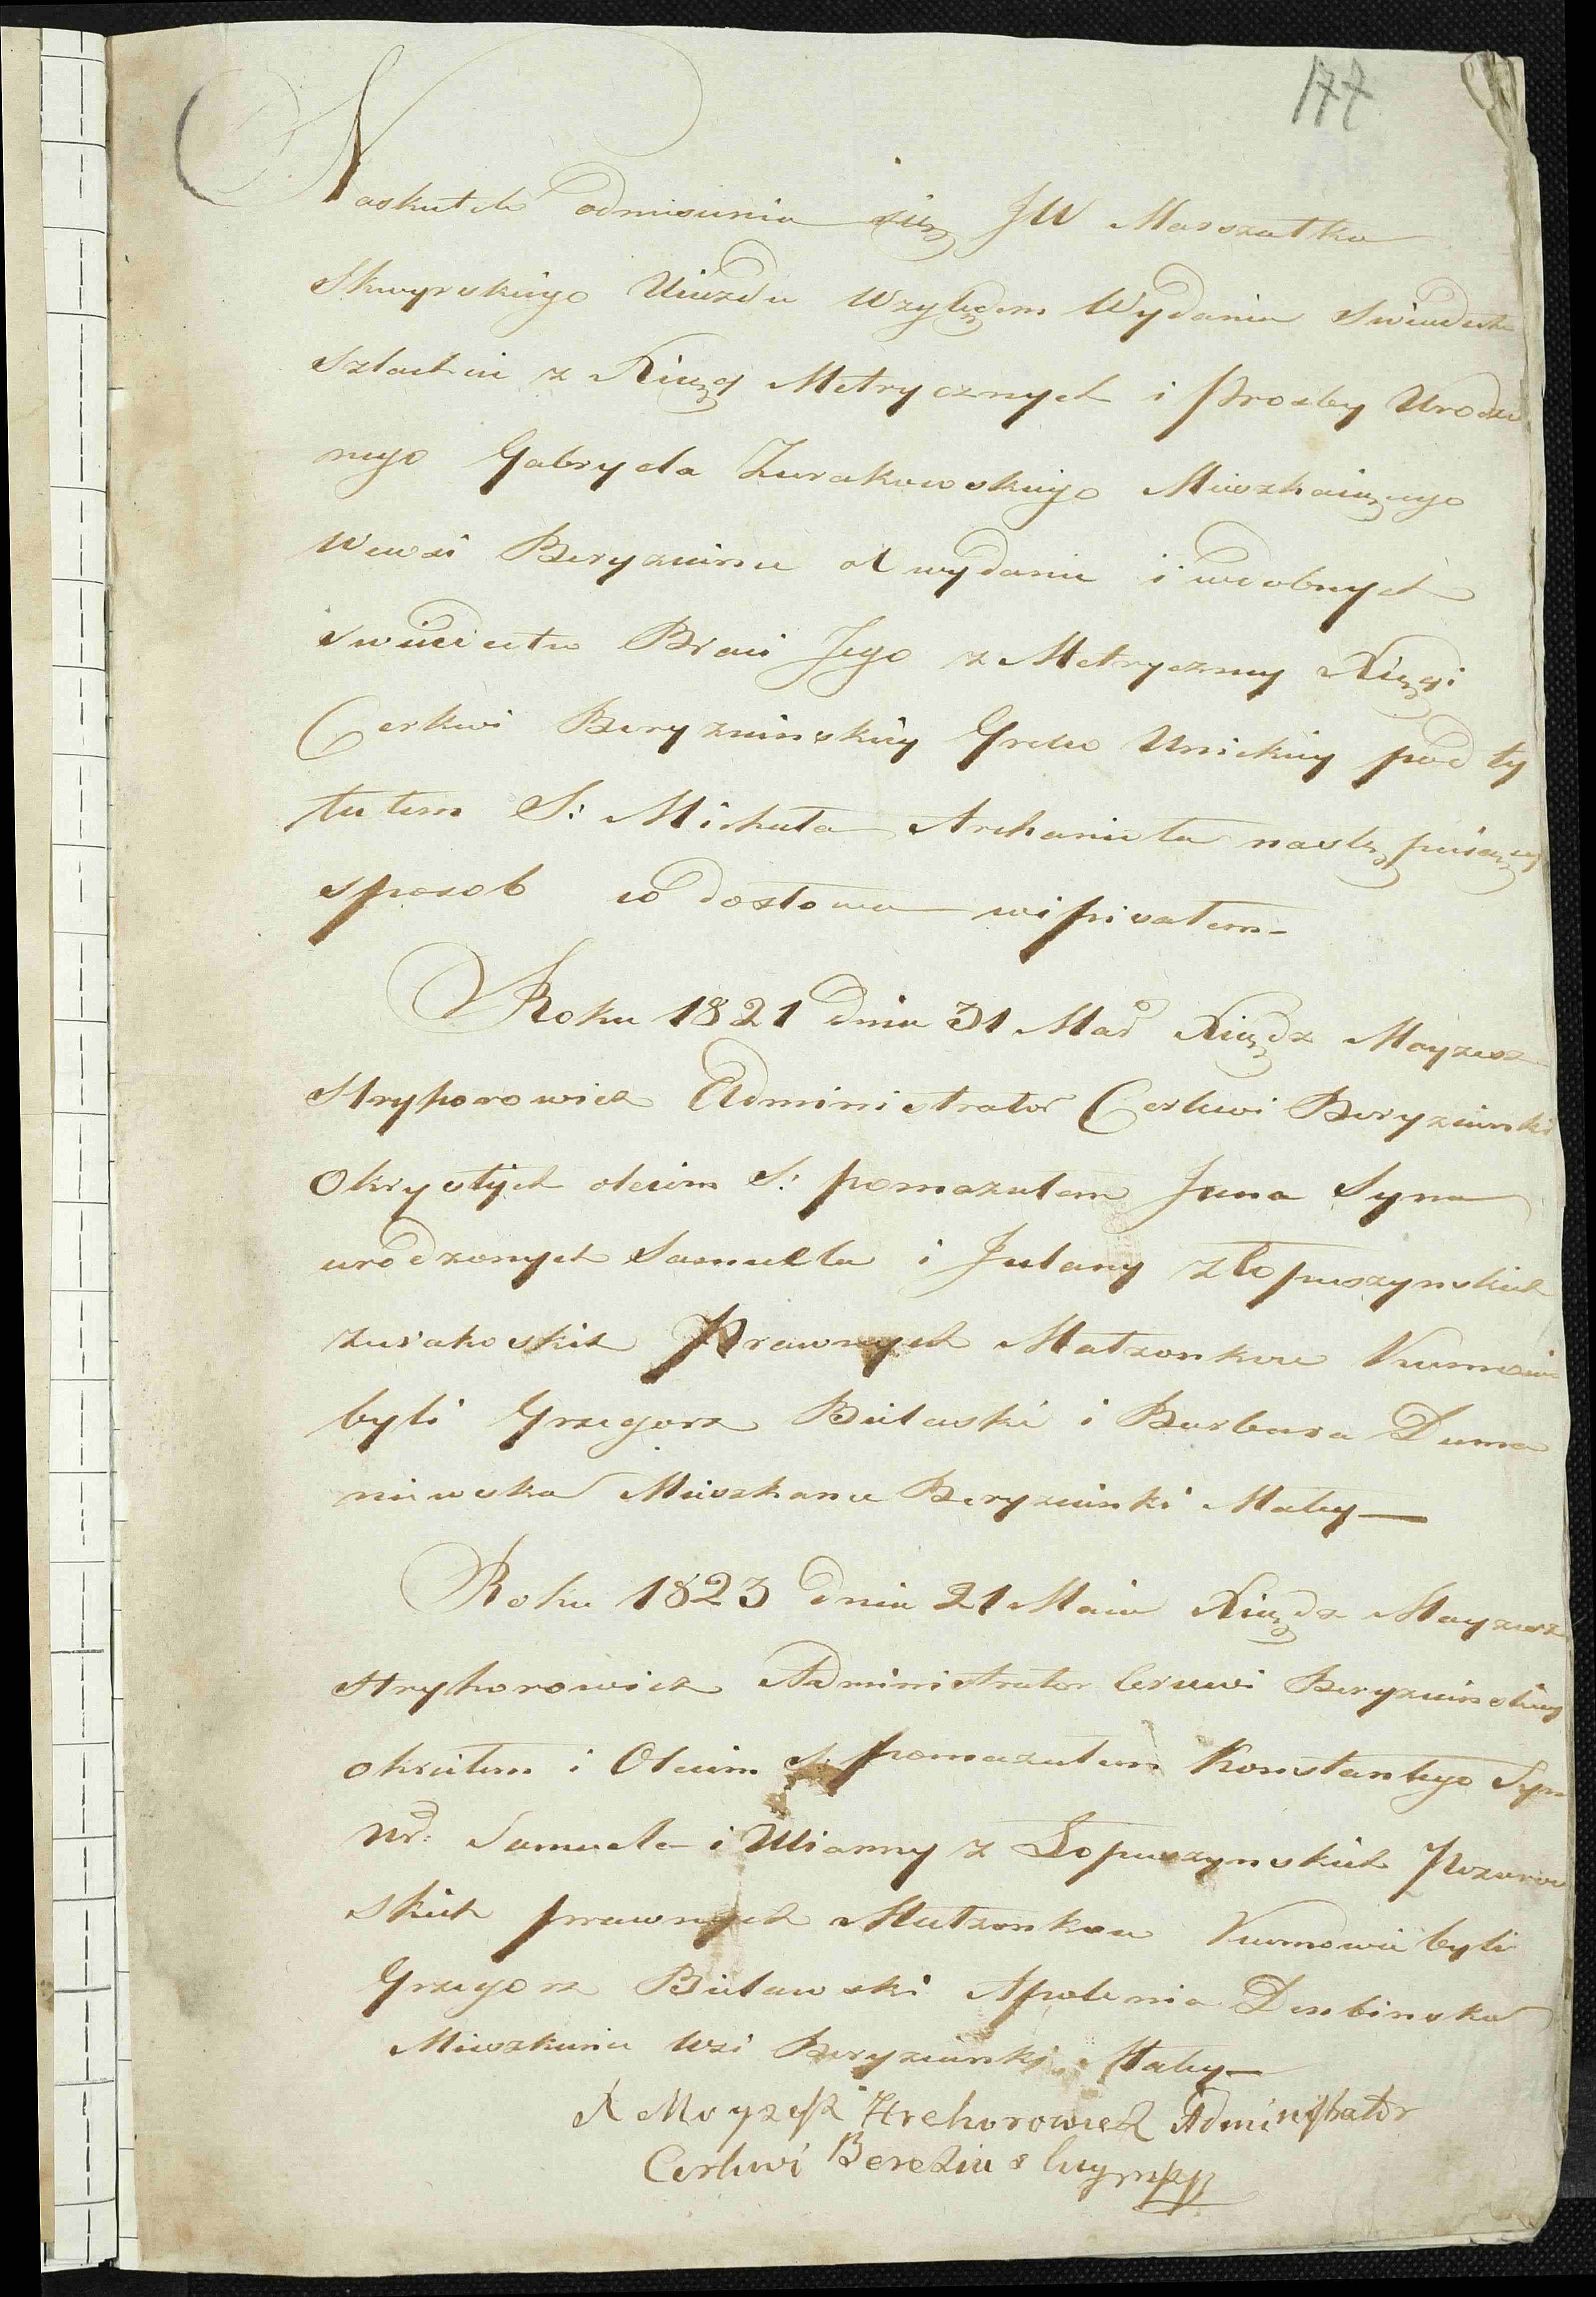 177
Naskutek odnisienia się JW Marszałka
Skwyrskiego Uiazdu Wzylędem Wydania Swiadectw
Szlachcie z Kięg Metrycznych i Prozby Urodzo
nego Gabryela Żurakowskiego Mieszkaiącego
Wewsi Beryznince o wydanie
swiadectw Braci Jego z Metryczney Kięgi
Cerkwi Beryznińskiey Greco Unickiey pod ty
tułem S: Michała Archanioła następuiący
sposob co dosłowa wipisałem-
Roku 1821 dnia 31 Mar Kiędz Moyzesz
Hryhorowicz Administrator Cerkwi Beryznińki
Okrystych oleiem S: pomazałem Jana Syna
urodzonych Samuela i Julany z Łopuszynskich
Żurakoskich Prawnych Małżonkow Kumowie
byli Grzegorz Bielaski i Barbara Duma
niewska Mieszkance Beryznińki Małey—
Roku 1823 dnia 21 Maia Kiędz Moyzesz
Hryhorowicz Administrator Cerkwi Beryznińskiey
okrcilem i Oleiem S: pomazałem Konstantego Syna
Ur: Samuela i Ulianny z Łopuszynskich
skich prawnych Małżonkow Kumowie byli
Grzegorz Bielawski Apolonia Dembinska
Mieszkanie Wsi Beryznińki Małey—
X Moyzesz Hrehorowicz Administrator
Cerkwi Bereznskiey mpp